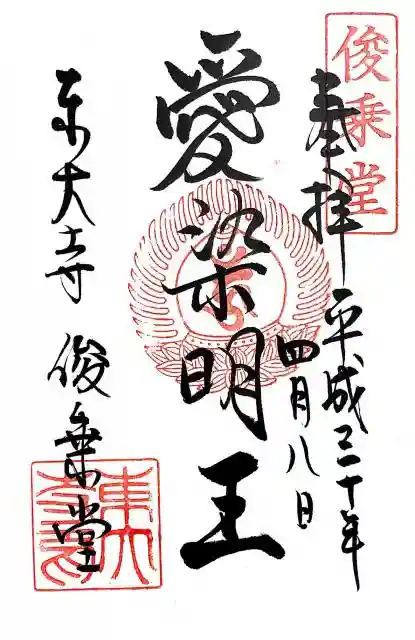 俊乗堂
奉拝 平成三十年
四月八日
愛染明王
東大寺 俊乗堂